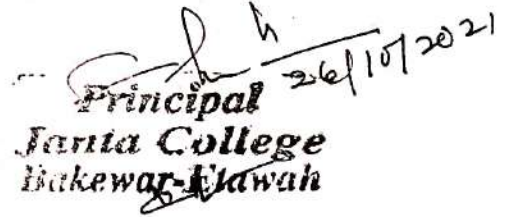 26/10/2021
Principal
Janta College
Bakewar-Etawah